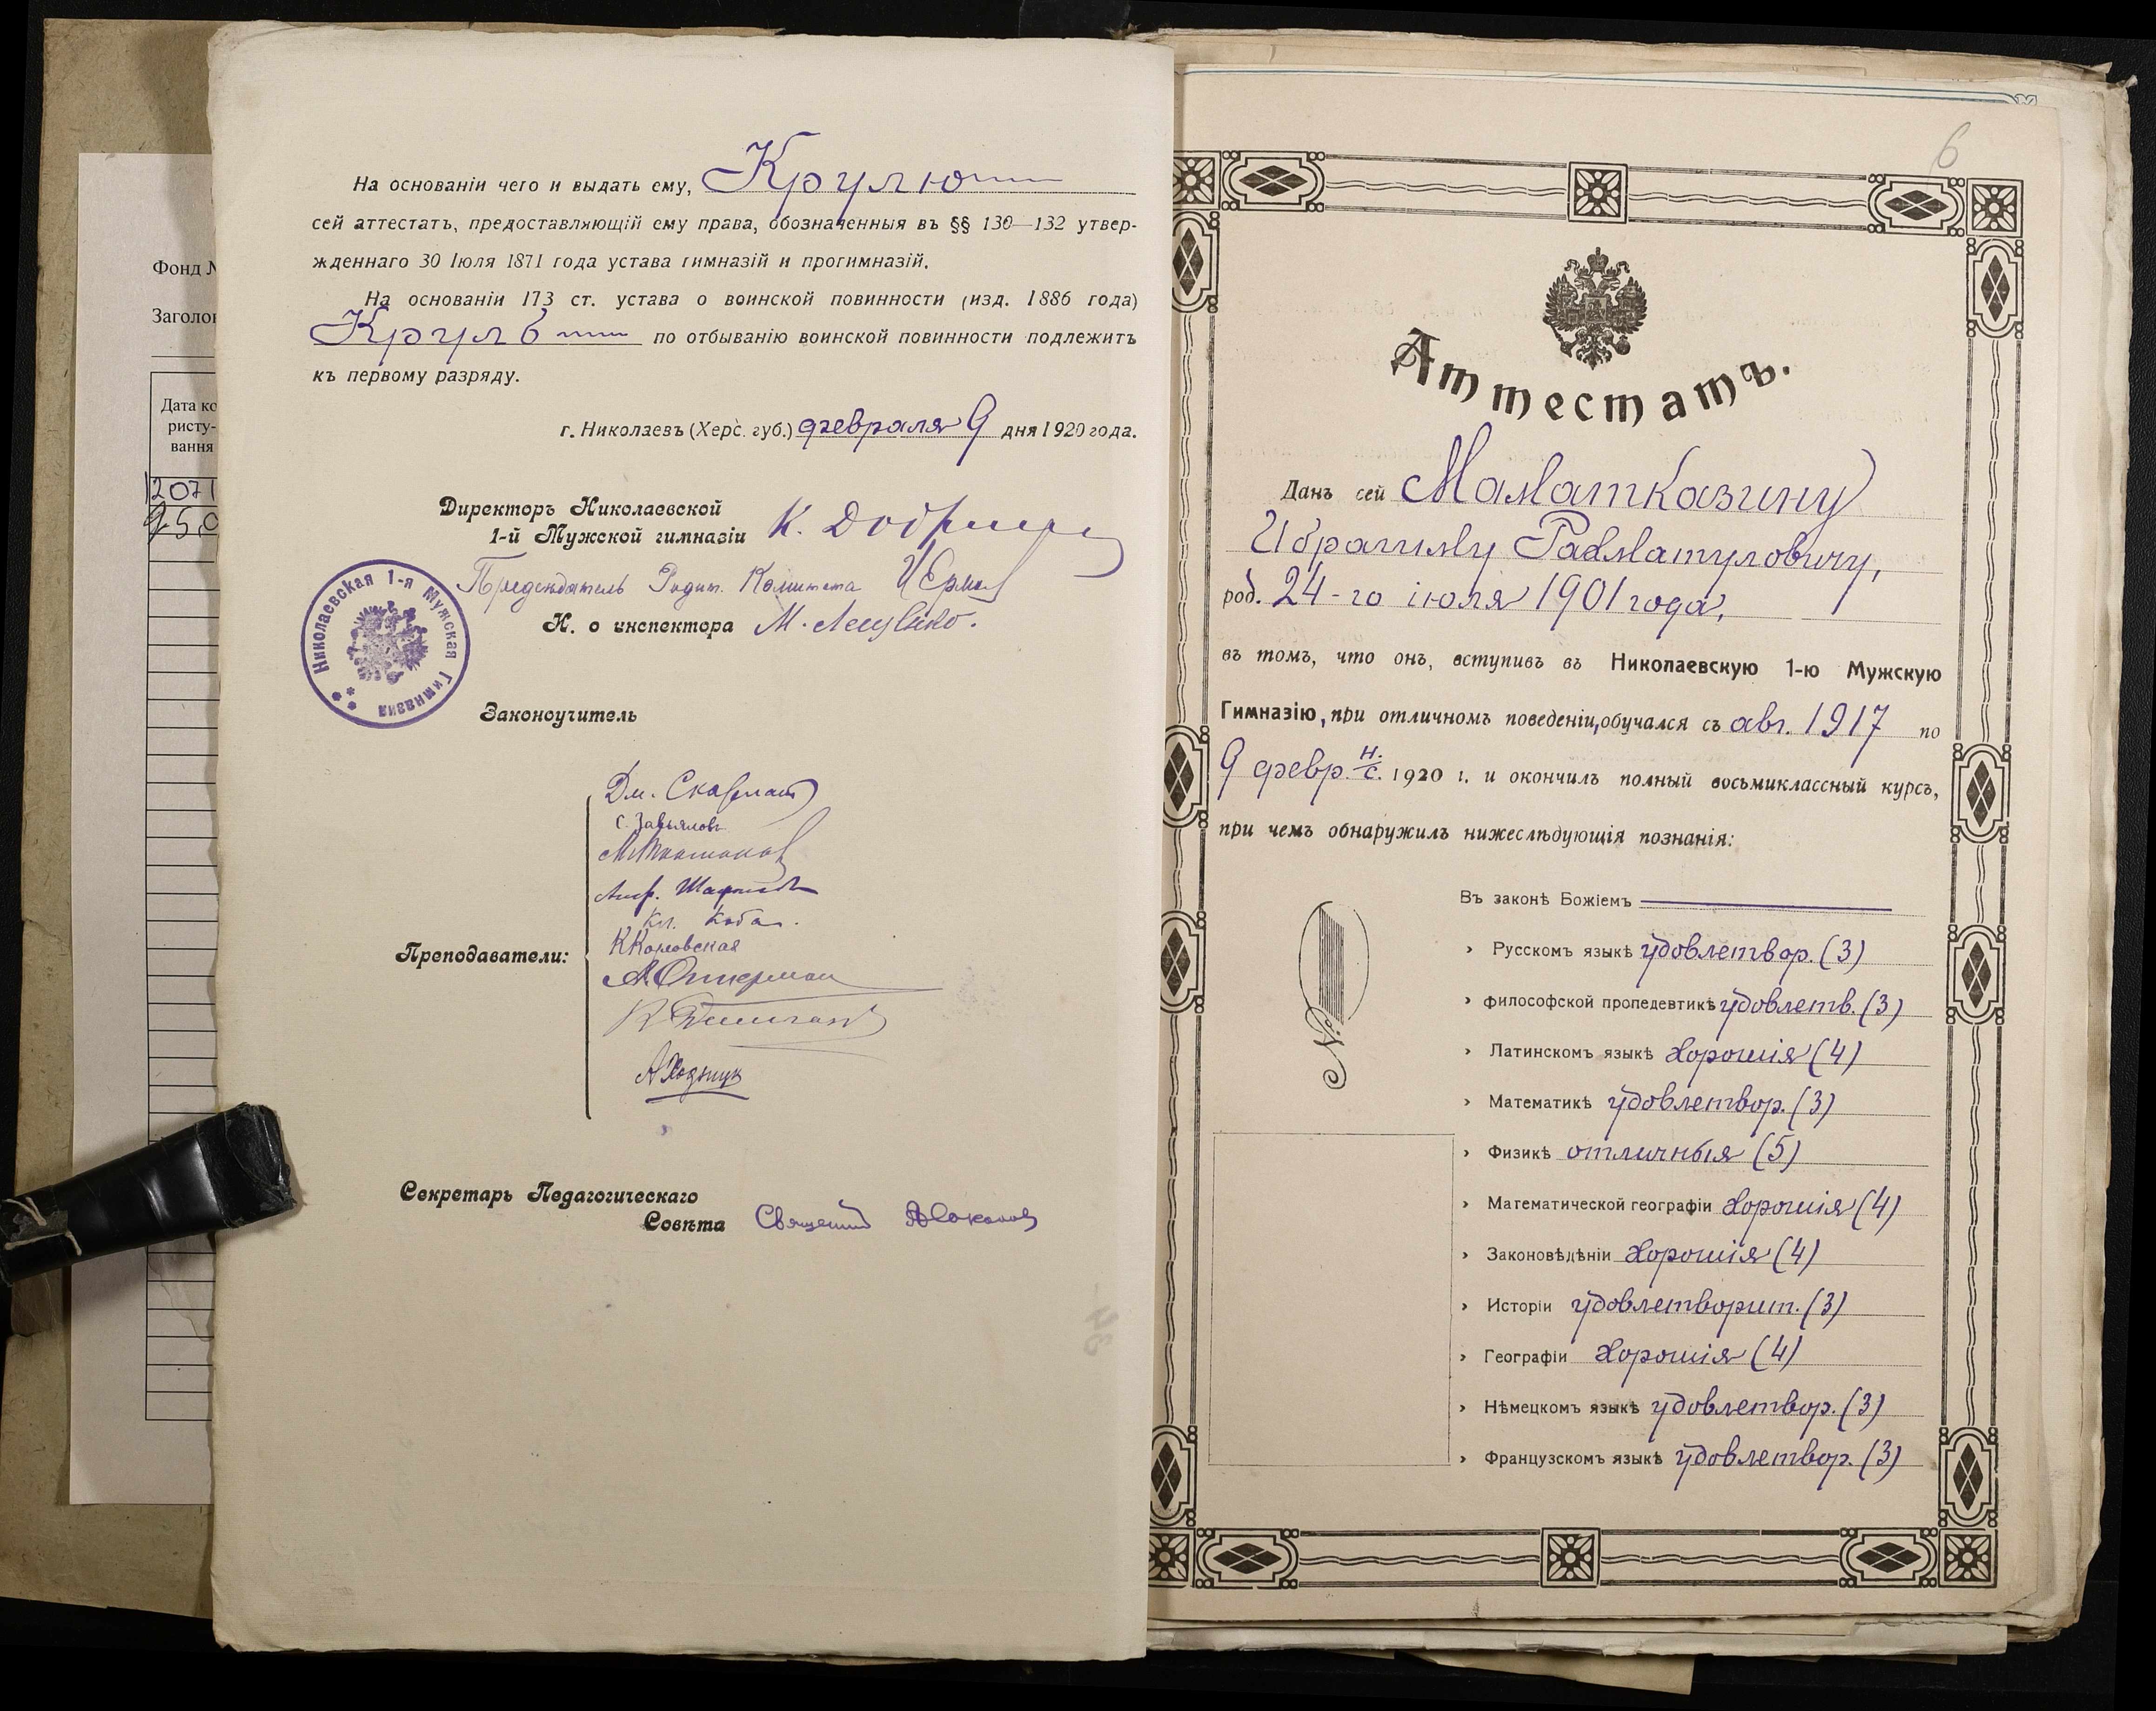 Фонд №
Заголо
Дата ко
ристу-
вання
12071
На основаніи чего и выдать ему, Крулю
сей аттестатъ, предоставляющій ему права, обозначенныя въ §§ 130—132 утвер-
жденнаго 30 Іюля 1871 года устава гимназій и прогимназій.
На основаніи 173 ст. устава о воинской повинности (изд. 1886 года)
Круль по отбыванію воинской повинности подлежитъ
къ первому разряду.
г. Николаевъ (Херс. губ.) февраля 9 дня 1920 года.
Директоръ Николаевской
1-й Мужской гимназіи К.
Предсѣдатель Родит. Комитета
И. о инспектора М.
Николаевская 1-я Мужская Гимназия
Законоучитель
Дм.
С. Завьяловъ
Кл. Коба
А.
Преподаватели:
Секретарь Педагогическаго
Совѣта Священникъ
6
Аттестатъ.
Данъ сей Маматказину
Ибрагиму Рахматуловичу,
род. 24-го іюля 1901 года,
въ томъ, что онъ, вступивъ въ Николаевскую 1-ю Мужскую
Гимназію, при отличномъ поведеніи, обучался съ авг. 1917 по
9 февр. н./с. 1920 г. и окончилъ полный восьмиклассный курсъ,
при чемъ обнаружилъ нижеслѣдующія познанія:
№
Въ законѣ Божіемъ
› Русскомъ языкѣ удовлетвор. (3)
› философской пропедевтикѣ удовлетв. (3)
› Латинскомъ языкѣ хорошія (4)
› Математикѣ удовлетвор. (3)
› Физикѣ отличныя (5)
› Математической географіи хорошія (4)
› Законовѣдѣніи хорошія (4)
› Исторіи удовлетворит. (3)
› Географіи хорошія (4)
› Нѣмецкомъ языкѣ удовлетвор. (3)
› Французскомъ языкѣ удовлетвор. (3)